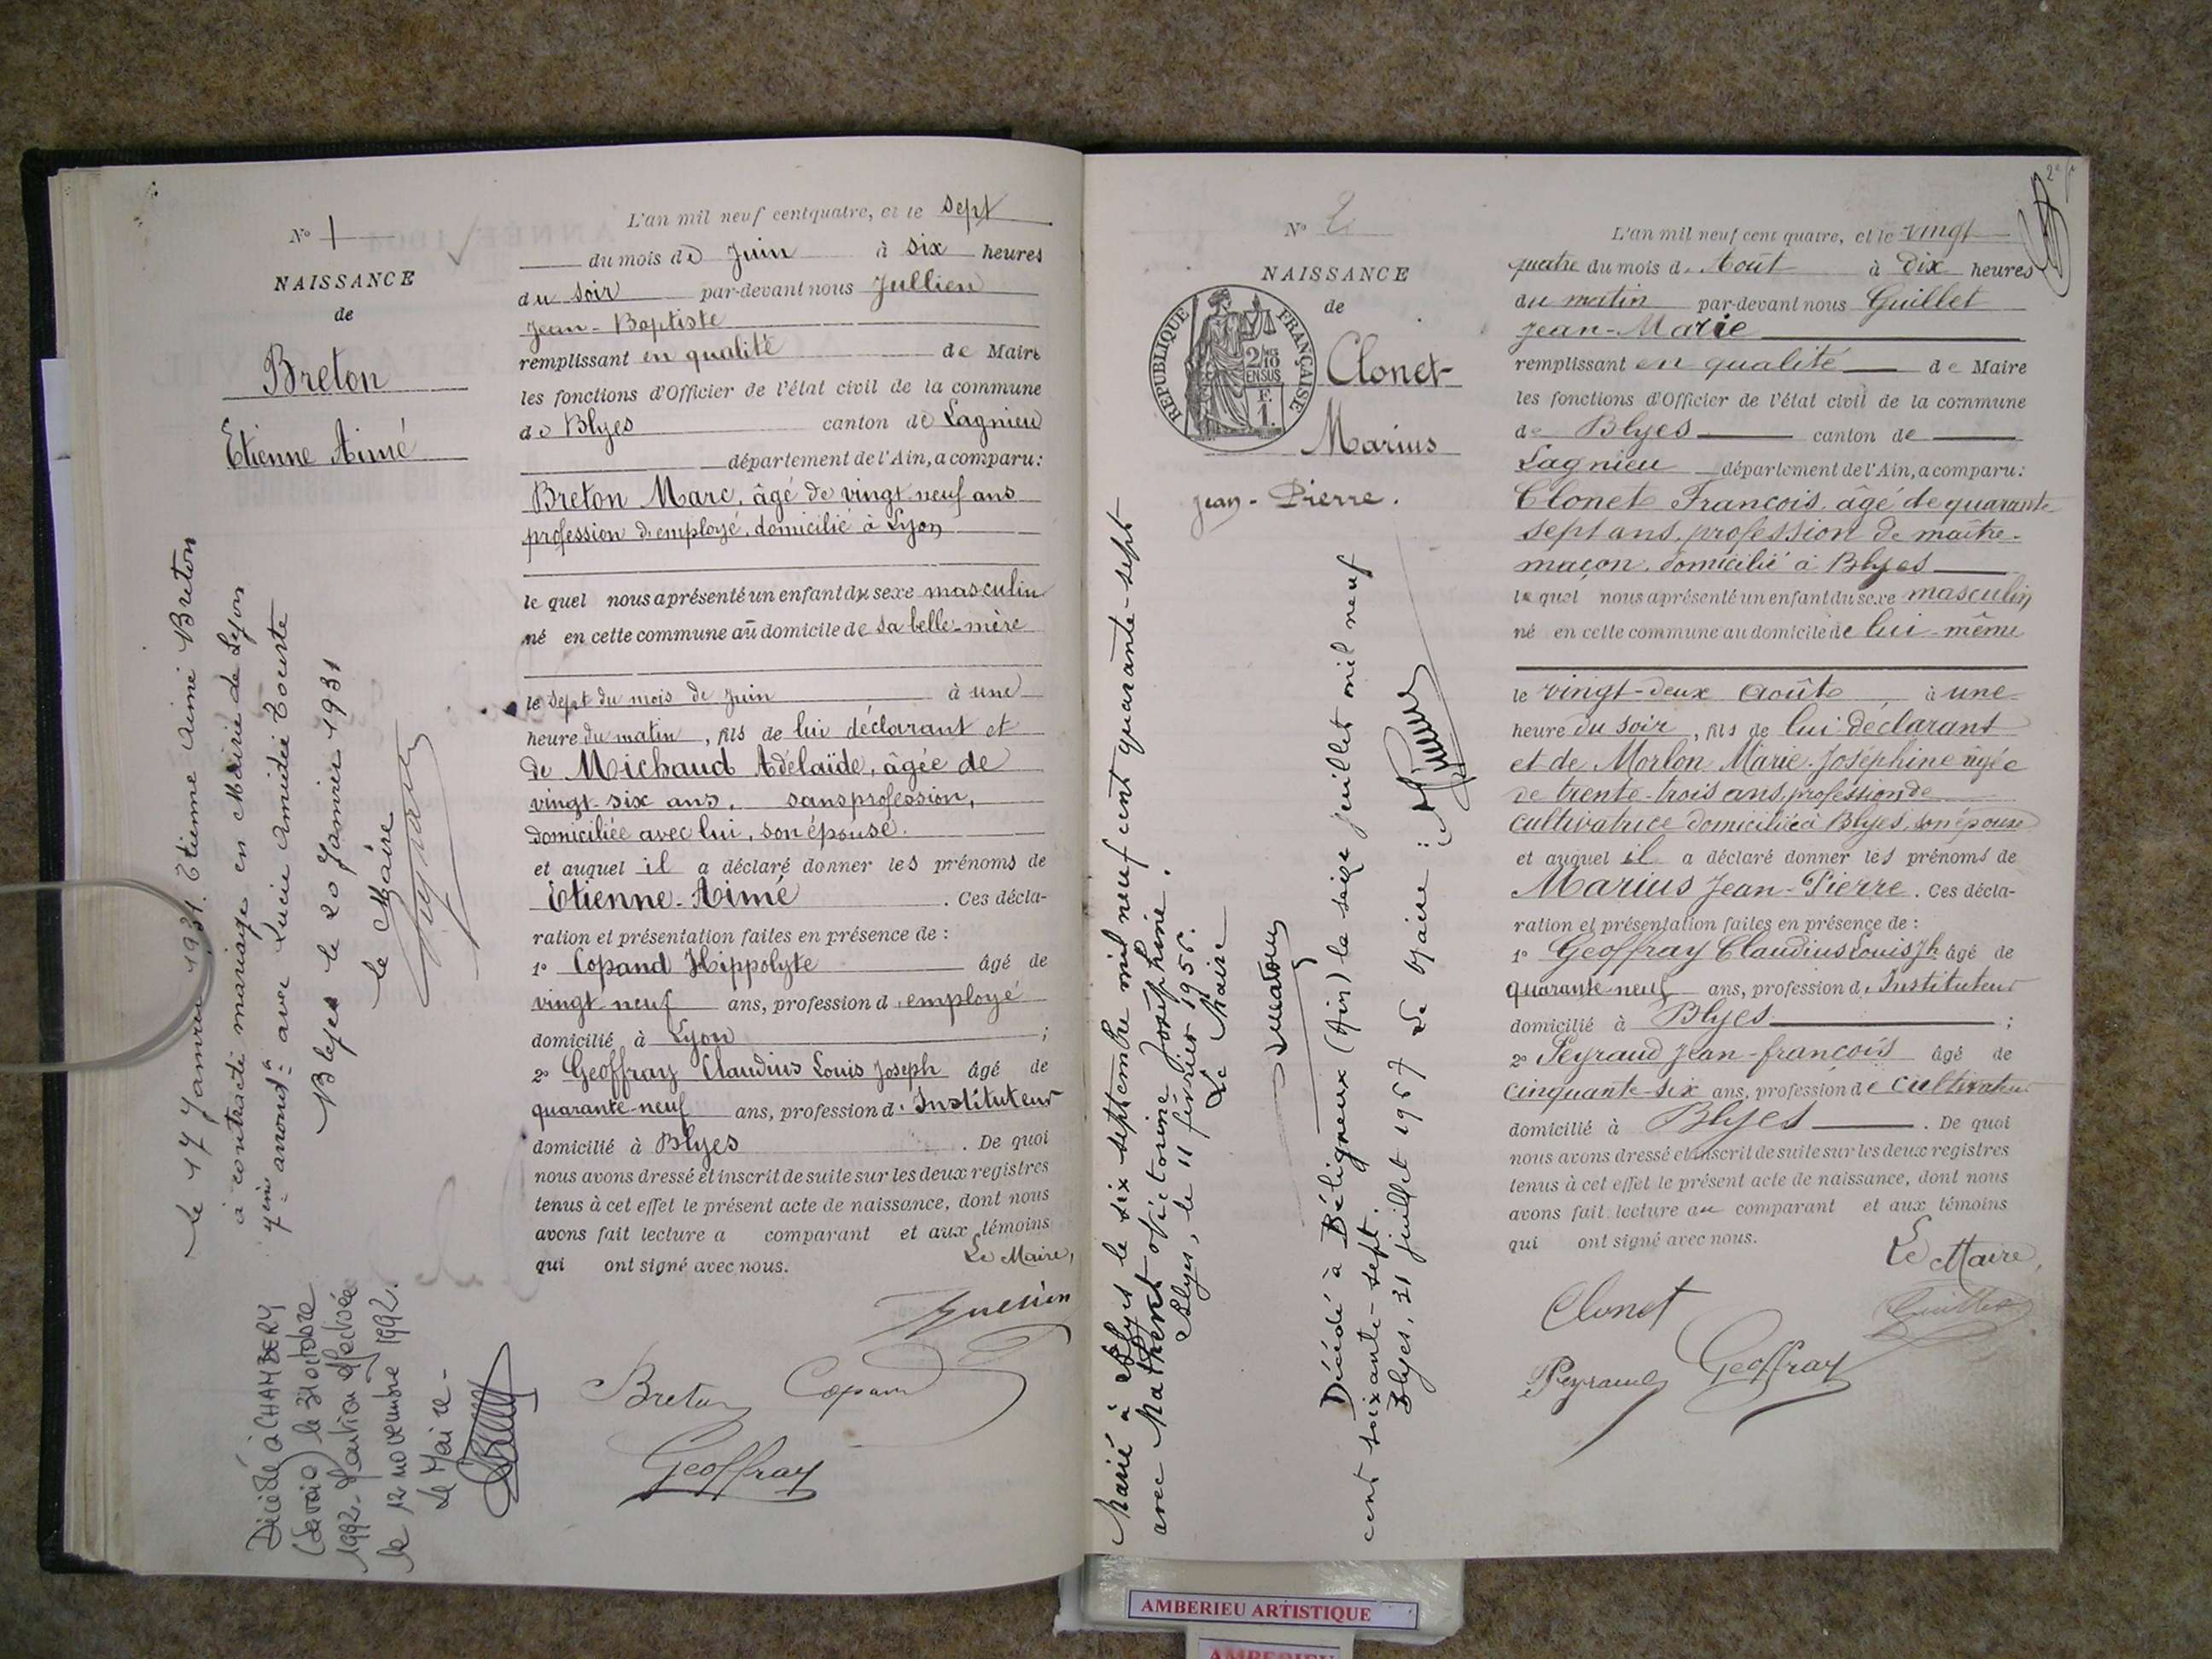 N° 1
NAISSANCE
de
Breton
Etienne Aimé
Le 17 Janvier 1931. Etienne Aimé Breton
a contracté mariage en Mairie de Lyon
arrondt avec Lucie Amitié
Blyes le 20 Janvier 1931
le Maire
Décédé à CHAMBERY
(Savoie) le 31 octobre
1992. Mention effectuée
le 12 novembre 1992.
Le Maire -
L'an mil neuf cent quatre, et le sept
du mois de Juin à six heures
du soir par-devant nous Jullien
Jean-Baptiste
remplissant en qualité de Maire
les fonctions d'Officier de l'état civil de la commune
de Blyes canton de Lagnieu
département de l'Ain, a comparu:
Breton Marc, âgé de vingt neuf ans
profession d'employé, domicilié à Lyon
le quel nous a présenté un enfant du sexe masculin
né en cette commune au domicile de sa belle-mère
le sept du mois de Juin à une
heure du matin, fils de lui déclarant et
de Michaud Adélaïde, âgée de
vingt-six ans, sans profession,
domiciliée avec lui, son épouse.
et auquel il a déclaré donner les prénoms de
Etienne-Aimé. Ces décla-
ration et présentation faites en présence de :
1° Copand Hippolyte âgé de
vingt neuf ans, profession d'employé
domicilié à Lyon ;
2° Geoffray Claudius Louis Joseph âgé de
quarante-neuf ans, profession d'Instituteur
domicilié à Blyes. De quoi
nous avons dressé et inscrit de suite sur les deux registres
tenus à cet effet le présent acte de naissance, dont nous
avons fait lecture a comparant et aux témoins
qui ont signé avec nous.
Le Maire,
Jullien
Breton Copand
Geoffray
N° 2
NAISSANCE
de
REPUBLIQUE FRANÇAISE
2/10 EN SUS
F. 1.
Clonet
Marius
Jean-Pierre.
Marié à Blyes le six septembre mil neuf cent quarante-sept
avec Mathent Victorine Joséphine.
Blyes, le 11 février 1956.
Le Maire
Décédé à Béligneux (Ain) le seize juillet mil neuf
cent soixante-sept.
Blyes, 21 juillet 1967 Le Maire :
L'an mil neuf cent quatre, et le vingt
quatre du mois d'Août à Dix heures
du matin par-devant nous Guillet
Jean-Marie
remplissant en qualité de Maire
les fonctions d'Officier de l'état civil de la commune
de Blyes canton de
Lagnieu département de l'Ain, a comparu:
Clonet François, âgé de quarante
sept ans, profession de maître-
maçon, domicilié à Blyes
le quel nous a présenté un enfant du sexe masculin
né en cette commune au domicile de lui-même
le vingt-deux Août à une
heure du soir, fils de lui déclarant
et de Morlon Marie-Joséphine âgée
de trente-trois ans, profession de
cultivatrice domiciliée à Blyes, son épouse
et auquel il a déclaré donner les prénoms de
Marius Jean-Pierre. Ces décla-
ration et présentation faites en présence de :
1° Geoffray Claudius Louis Jh âgé de
quarante neuf ans, profession d'Instituteur
domicilié à Blyes ;
2° Peyraud Jean-François âgé de
cinquante-six ans, profession de cultivateur
domicilié à Blyes. De quoi
nous avons dressé et inscrit de suite sur les deux registres
tenus à cet effet le présent acte de naissance, dont nous
avons fait lecture au comparant et aux témoins
qui ont signé avec nous.
Le Maire,
Clonet Guillet
Peyraud Geoffray
AMBERIEU ARTISTIQUE
AMBERIEU